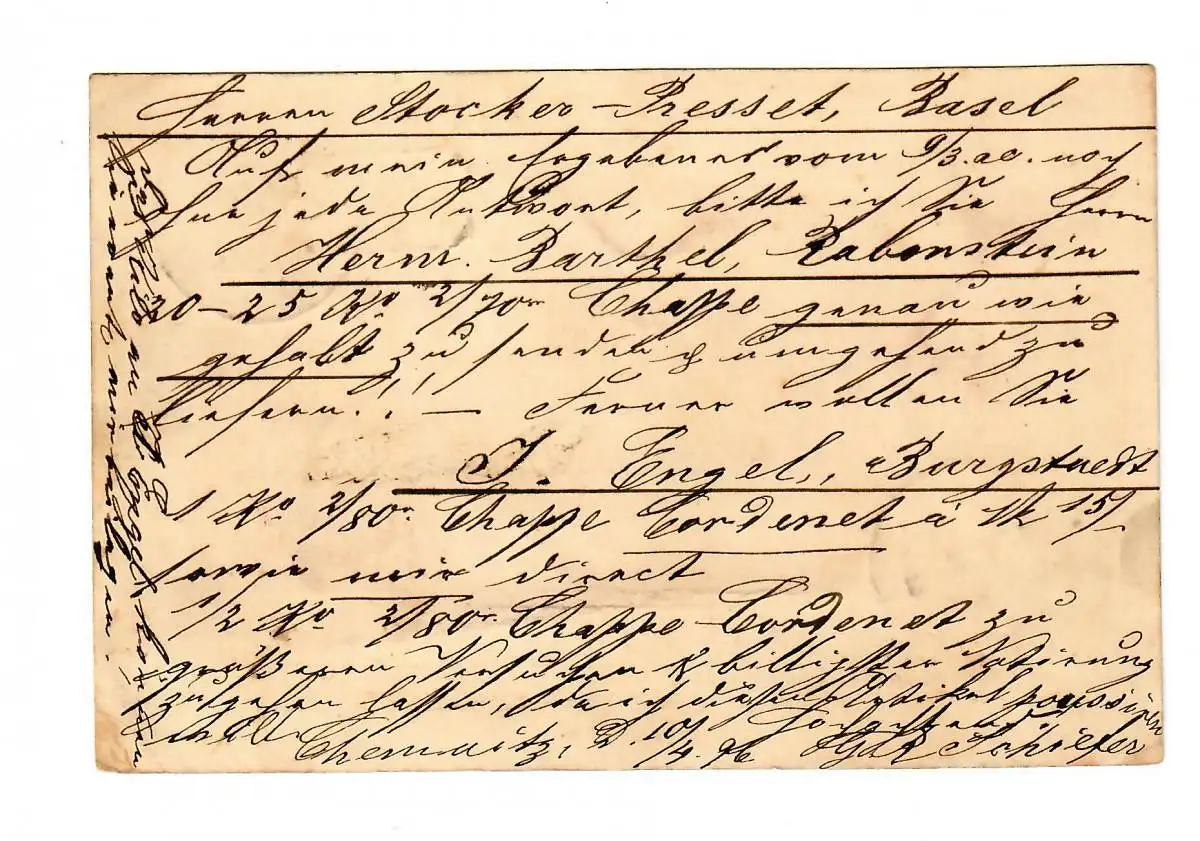 Herren Stocker-Presset, Basel
Auf mein Ergebenes vom 9/3. ac. noch
ohne jede Antwort, bitte ich Sie Herrn
Herm. Barthel, Rabenstein
20-25 Ko 2/70er Chappe genau wie
gehabt zu senden & umgehend zu
liefern.!! — Ferner wollen Sie
J. Engel, Burgstaedt
1 Ko 2/80er Chappe Cordonet à M 15/
sowie mir direct
1/2 Ko 2/80er Chappe Cordonet zu
größeren Versuchen & billigster Notirung
zugehen lassen, da ich diesen Artikel poussiren
will.
Chemnitz, d. 10/4. 96 Schiefer